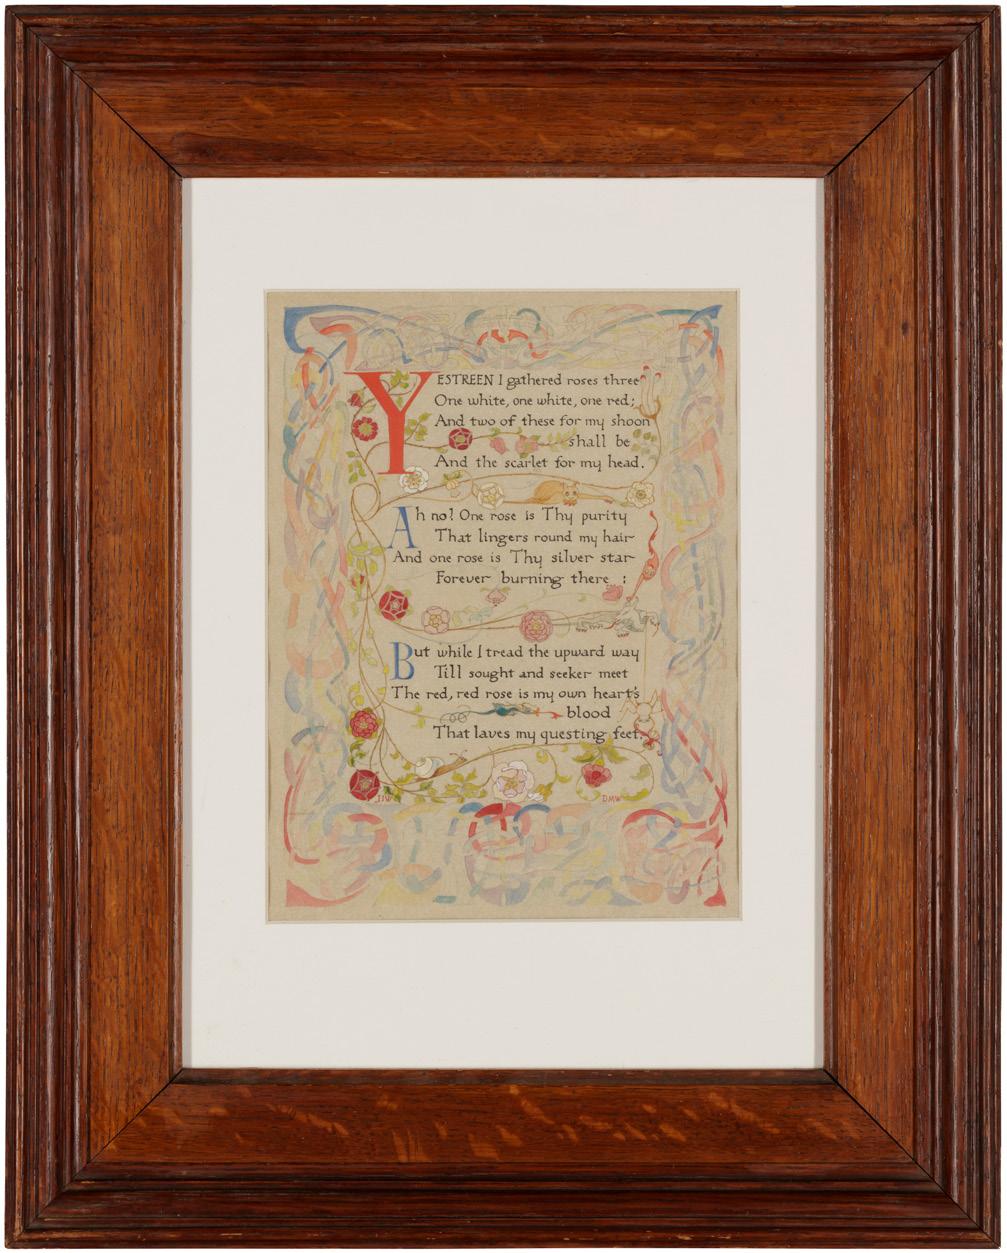 YESTREEN I gathered roses three
One white, one white, one red;
And two of these for my shoon
shall be
And the scarlet for my head.
Ah no! One rose is Thy purity
That lingers round my hair
And one rose is Thy silver star
Forever burning there :
But while I tread the upward way
Till sought and seeker meet
The red, red rose is my own heart's
blood
That laves my questing feet.
JJW DMW